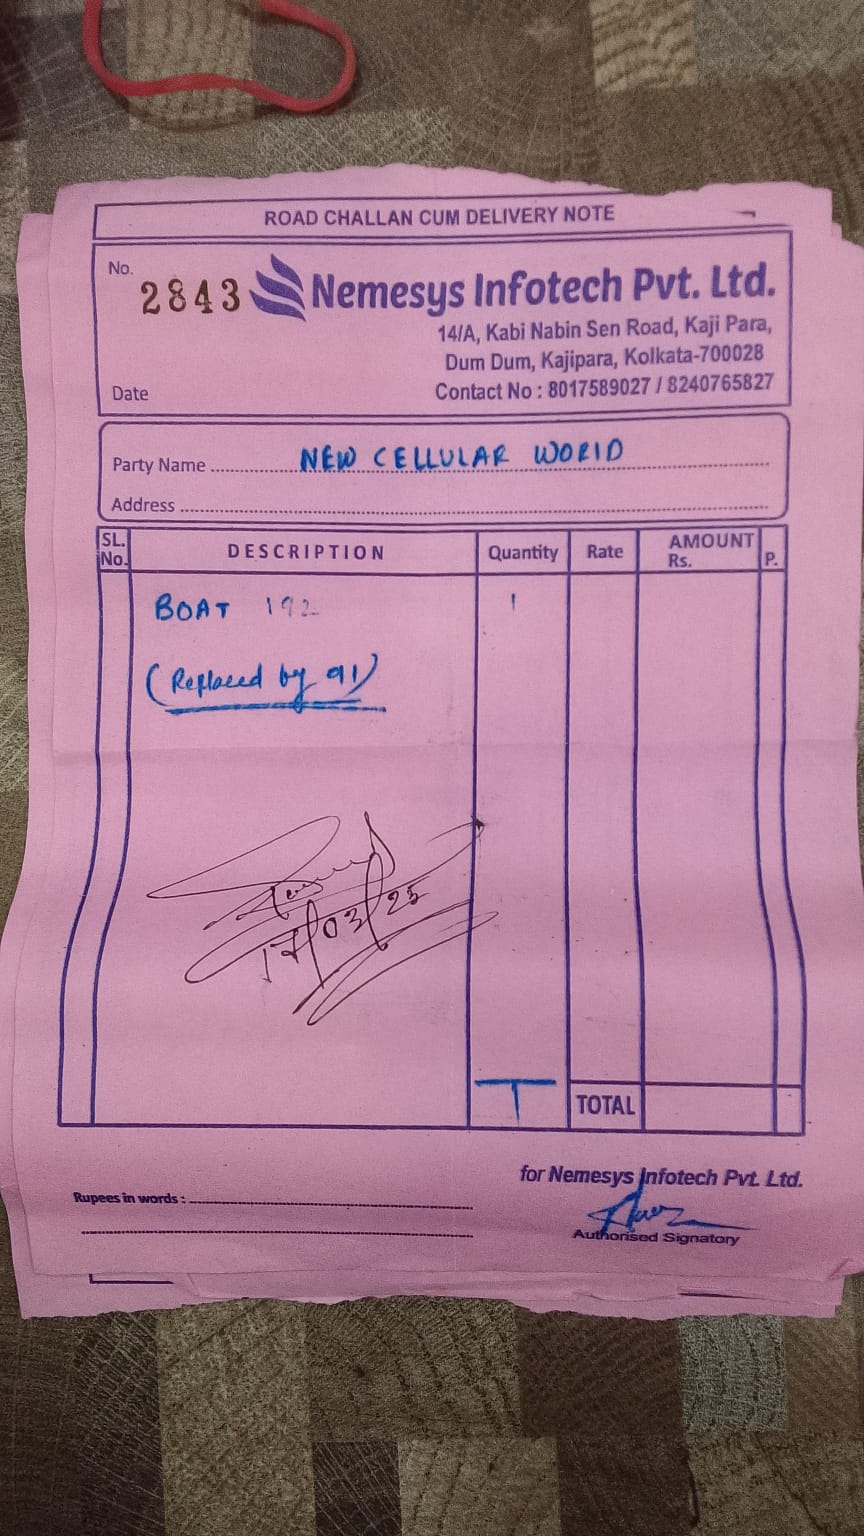 ROAD CHALLAN CUM DELIVERY NOTE
No. 2843
Nemesys Infotech Pvt. Ltd.
14/A, Kabi Nabin Sen Road, Kaji Para,
Dum Dum, Kajipara, Kolkata-700028
Contact No : 8017589027 / 8240765827
Date
Party Name NEW CELLULAR WORLD
Address
SL. No. DESCRIPTION Quantity Rate AMOUNT Rs. P.
BOAT 192 1
(Replaced by 91)
17/03/25
TOTAL
for Nemesys Infotech Pvt. Ltd.
Rupees in words :
Authorised Signatory